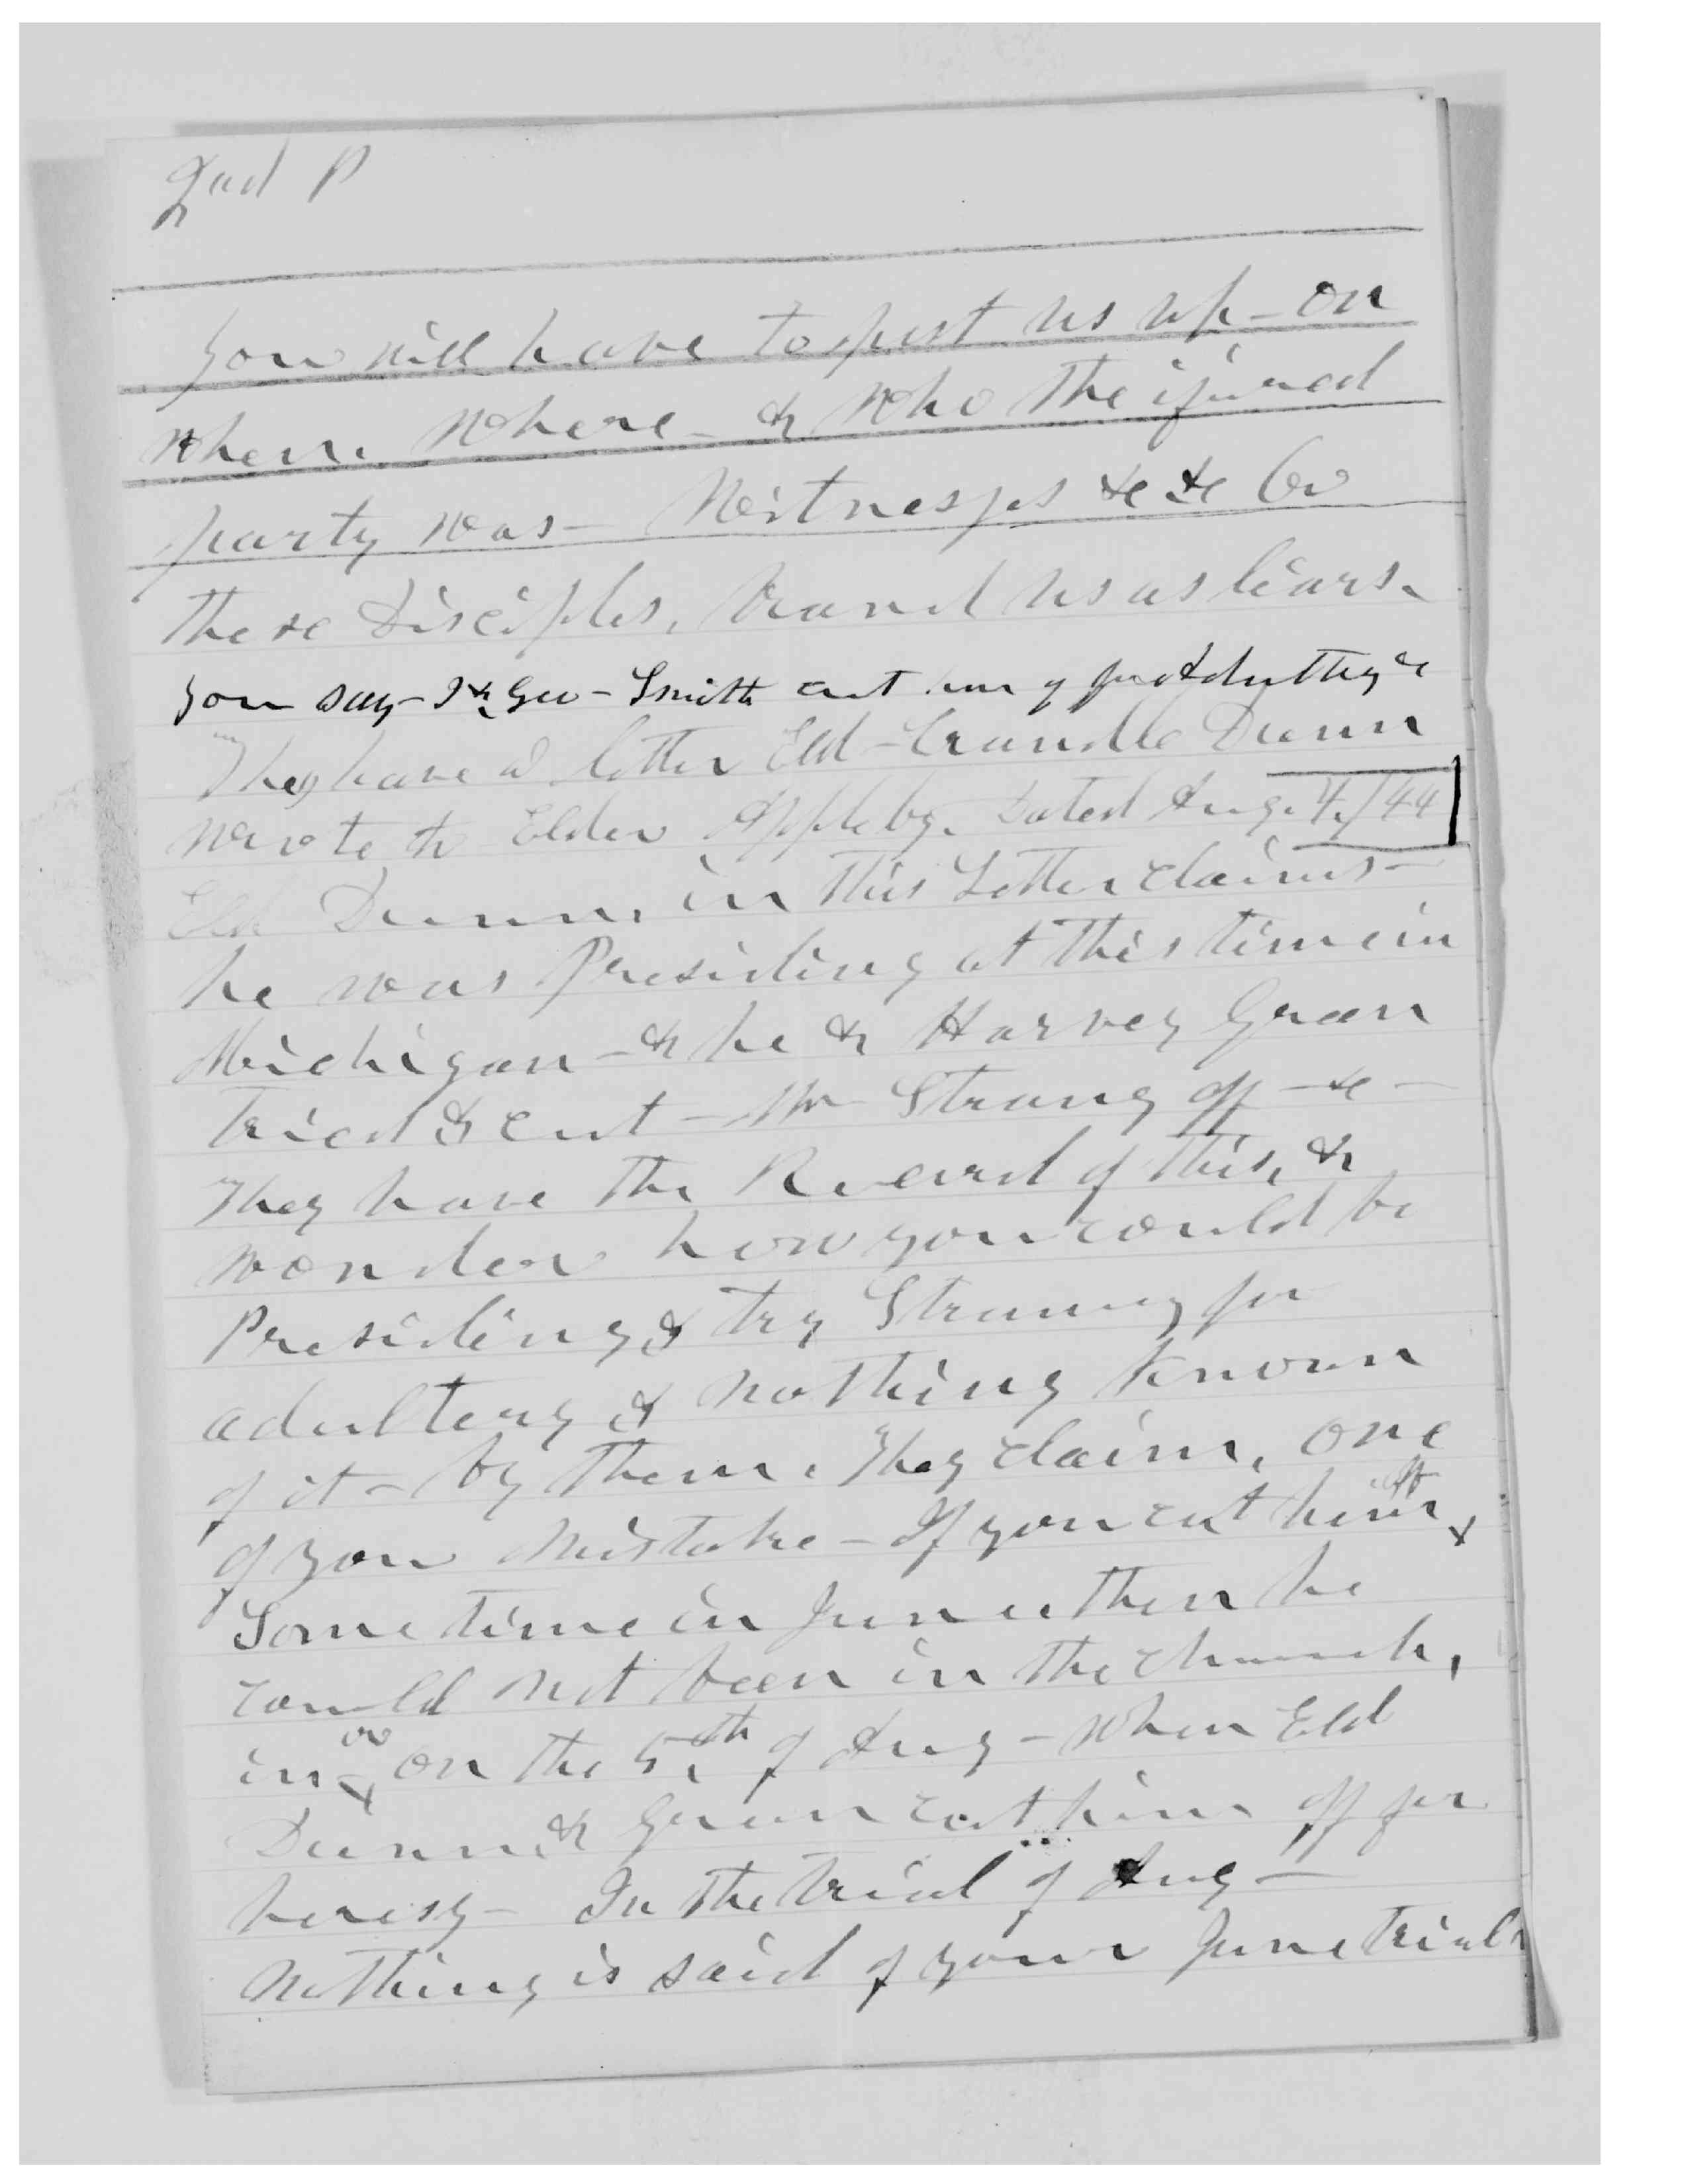 2nd P
you will have to post us up - on
when. Where - & Who the ijured
party was - Witnesses &c &c Or
these Disciples, brand us as liars.
you say - I & Geo - Smith cut him off for Adultry &c
They have a letter Eld - Crandle Dunn
wrote to Elder Appleby. Dated Aug. 4/44
Eld Dunn, in this Letter claims -
he was Presiding at this time in
Michigan - & he & Harvey Green
tried & cut - Mr Strang off - &c -
They have the Record of this, &
wonder how you could be
Presiding & try Strang for
adultery & nothing known
of it - by them. They claim, one
of you mistake - If you cut him off
Some time in June then he
could not been in the church,
in or on the 5th of Aug - when Eld
Dunn & Green cut him off for
heresy - In the trial of Aug -
nothing is said of your June trial